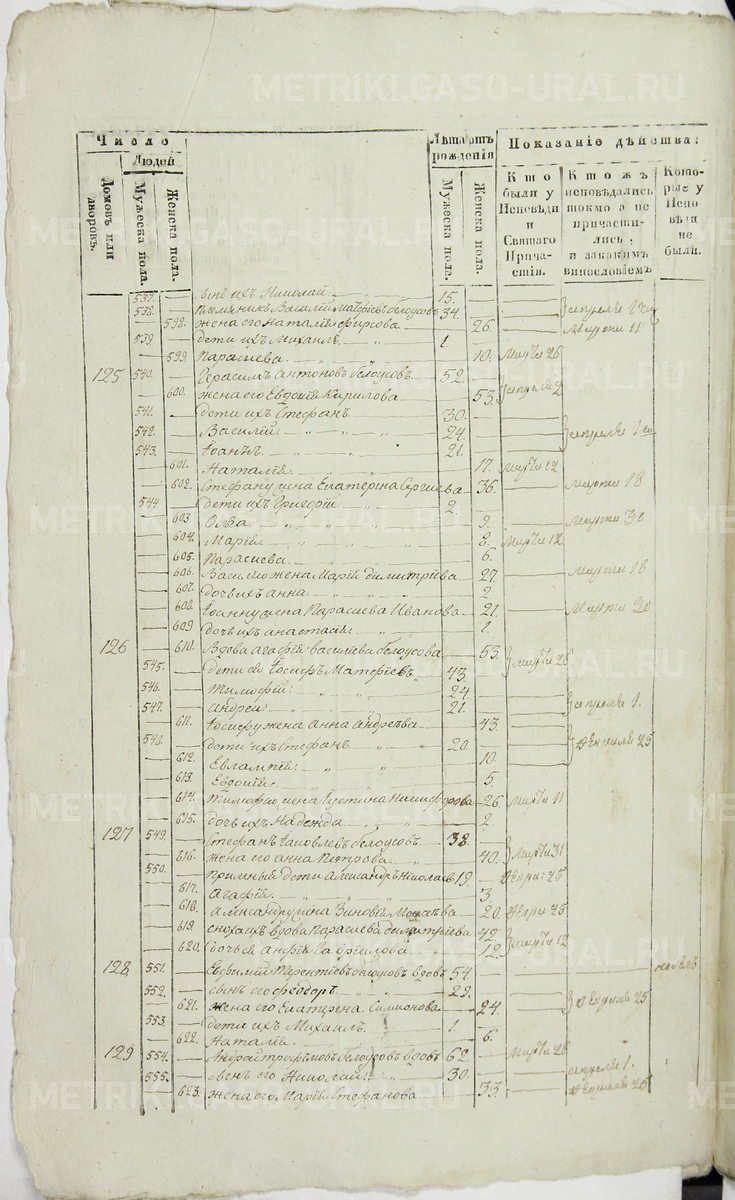 METRIKI.GASO-URAL.RU
Число
Людей
Домовъ или дворовъ.
Мужеска пола.
Женска пола.
Лѣта отъ рожденія
Мужеска пола.
Женска пола.
Показаніе дѣйства:
Кто были у Исповѣди и Святаго Причастія.
Кто жъ исповѣдались токмо а не причастились, и закакимъ винословіемъ
Которые у Исповѣди не были.
537. сынъ ихъ Николай 15.
538. Племянникъ Василій Матѳіевъ белоусовъ 34.
598. жена его Наталія Фирсова 26 Марта 11
539. дети ихъ Михаилъ 1.
599. Парасиева 10. Марта 26
125 540. Герасимъ антоновъ белоусовъ 52.
600. жена его Евдокія Кирилова 53.
541. дети ихъ Стефанъ 30.
542. Василій 24.
543. Іоаннъ 21.
601. Наталія 17. Марта 12
602. Стефану жена Екатерина Сергиева 36. Марта 18
544. дети ихъ Григорій 2.
603. Олга 9. Марта 30
604. Марія 8. Марта 12
605. Парасиева 6.
606. Василію жена Марія димитріева 27. Марта 18
607. дочь ихъ анна 2.
608. Іоанну жена Парасиева Иванова 21. Марта 30
609 дочь ихъ анастасія 1.
126 610. Вдова агафія василиева белоусова 53. Марта 26
545. дети ея Іосифъ Матфіевъ 43.
546. Тимофій 24.
547. андрей 21. апреля 1.
611. Іосифу жена Анна Андреева 43.
548. дети ихъ Стефанъ 20.
612. Евлампія 10.
613. Евдокія 5.
614. Тимофію жена Іустина Никифорова 26. Марта 11
615. дочь ихъ Надежда 2.
127 549. Стефанъ Іаковлевъ белоусовъ 38.
616. жена его анна Петрова 40. Марта 31
550. Приемный дети Александръ Николаевъ 19.
617. Агафія 3.
618. Александру жена Зиновія Моисеева 20.
619. сноха ихъ вдова Парасиева димитріева 42. Марта 12
620. дочь ея Гавріилова 12.
128 551. Евфимій Терентіевъ белоусовъ вдовъ 54.
552. сынъ его феодоръ 29.
621. жена его Екатерина Симионова 24.
553. дети ихъ Михаилъ 1
622. Наталія 6.
129 554. Андрей трофимовъ белоусовъ вдовъ 62. Марта 26
555. сынъ его Николай 30. апреля 1.
623. жена его Марія Стефанова 33.